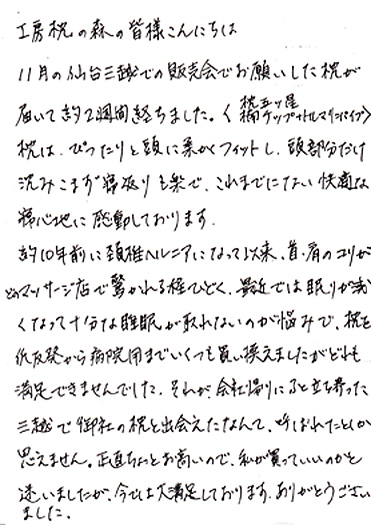 工房枕の森の皆様こんにちは
11月の仙台三越での販売会でお願いした枕が
届いて約2週間経ちました。〈枕五ッ星
チップ+トルマリンパイプ〉
枕は、ぴったりと頭に柔かくフィットし、頭部分だけ
沈みこまず寝返りも楽で、これまでにない快適な
寝心地に感動しております。
約10年前に頚椎ヘルニアになって以来、首・肩のコリが
どのマッサージ店で驚かれる程ひどく、最近では眠りが浅
くなって十分な睡眠が取れないのが悩みで、枕を
低反発から病院用までいくつも買い換えましたがどれも
満足できませんでした。それが、会社帰りにふと立ち寄った
三越で御社の枕と出会えたなんて、呼ばれたとしか
思えません。正直ちょっとお高いので、私が買っていいのかと
迷いましたが、今では大満足しております。ありがとうござい
ました。